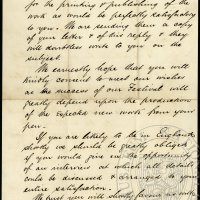 for the printing & publishing of the
work as would be perfectly satisfactory
to you. We are sending them a copy
of your letter & of this reply & they
will doubtless write to you on the
subject.
We earnestly hope that you will
kindly consent to meet our wishes
as the success of our Festival will
greatly depend upon the production
of the new work from your
pen.
If you are likely to be in England
shortly we should be greatly obliged
if you would give us the opportunity
of an interview at which all details
could be discussed & arranged to your
entire satisfaction.
We trust you will kindly favour us with